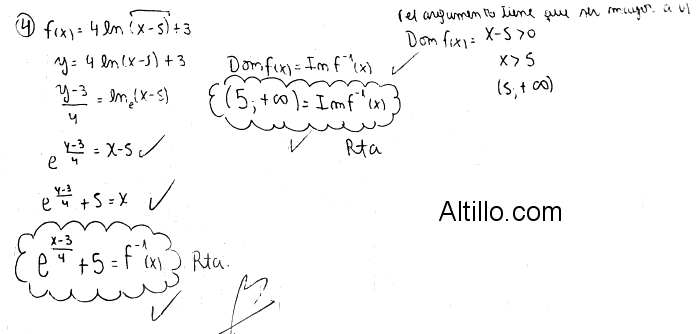 ④ f(x) = 4 ln (x-5) + 3
y = 4 ln (x-5) + 3
y-3/4 = ln_e (x-5)
e^(y-3/4) = x-5 ✓
e^(y-3/4) + 5 = x ✓
e^(x-3/4) + 5 = f⁻¹(x) Rta.
✓
Dom f(x) = Im f⁻¹(x) ✓
(5; +∞) = Im f⁻¹(x)
✓ Rta
(el argumento tiene que ser mayor a 0)
Dom f(x) = x-5 > 0
x > 5
(5; +∞)
Altillo.com